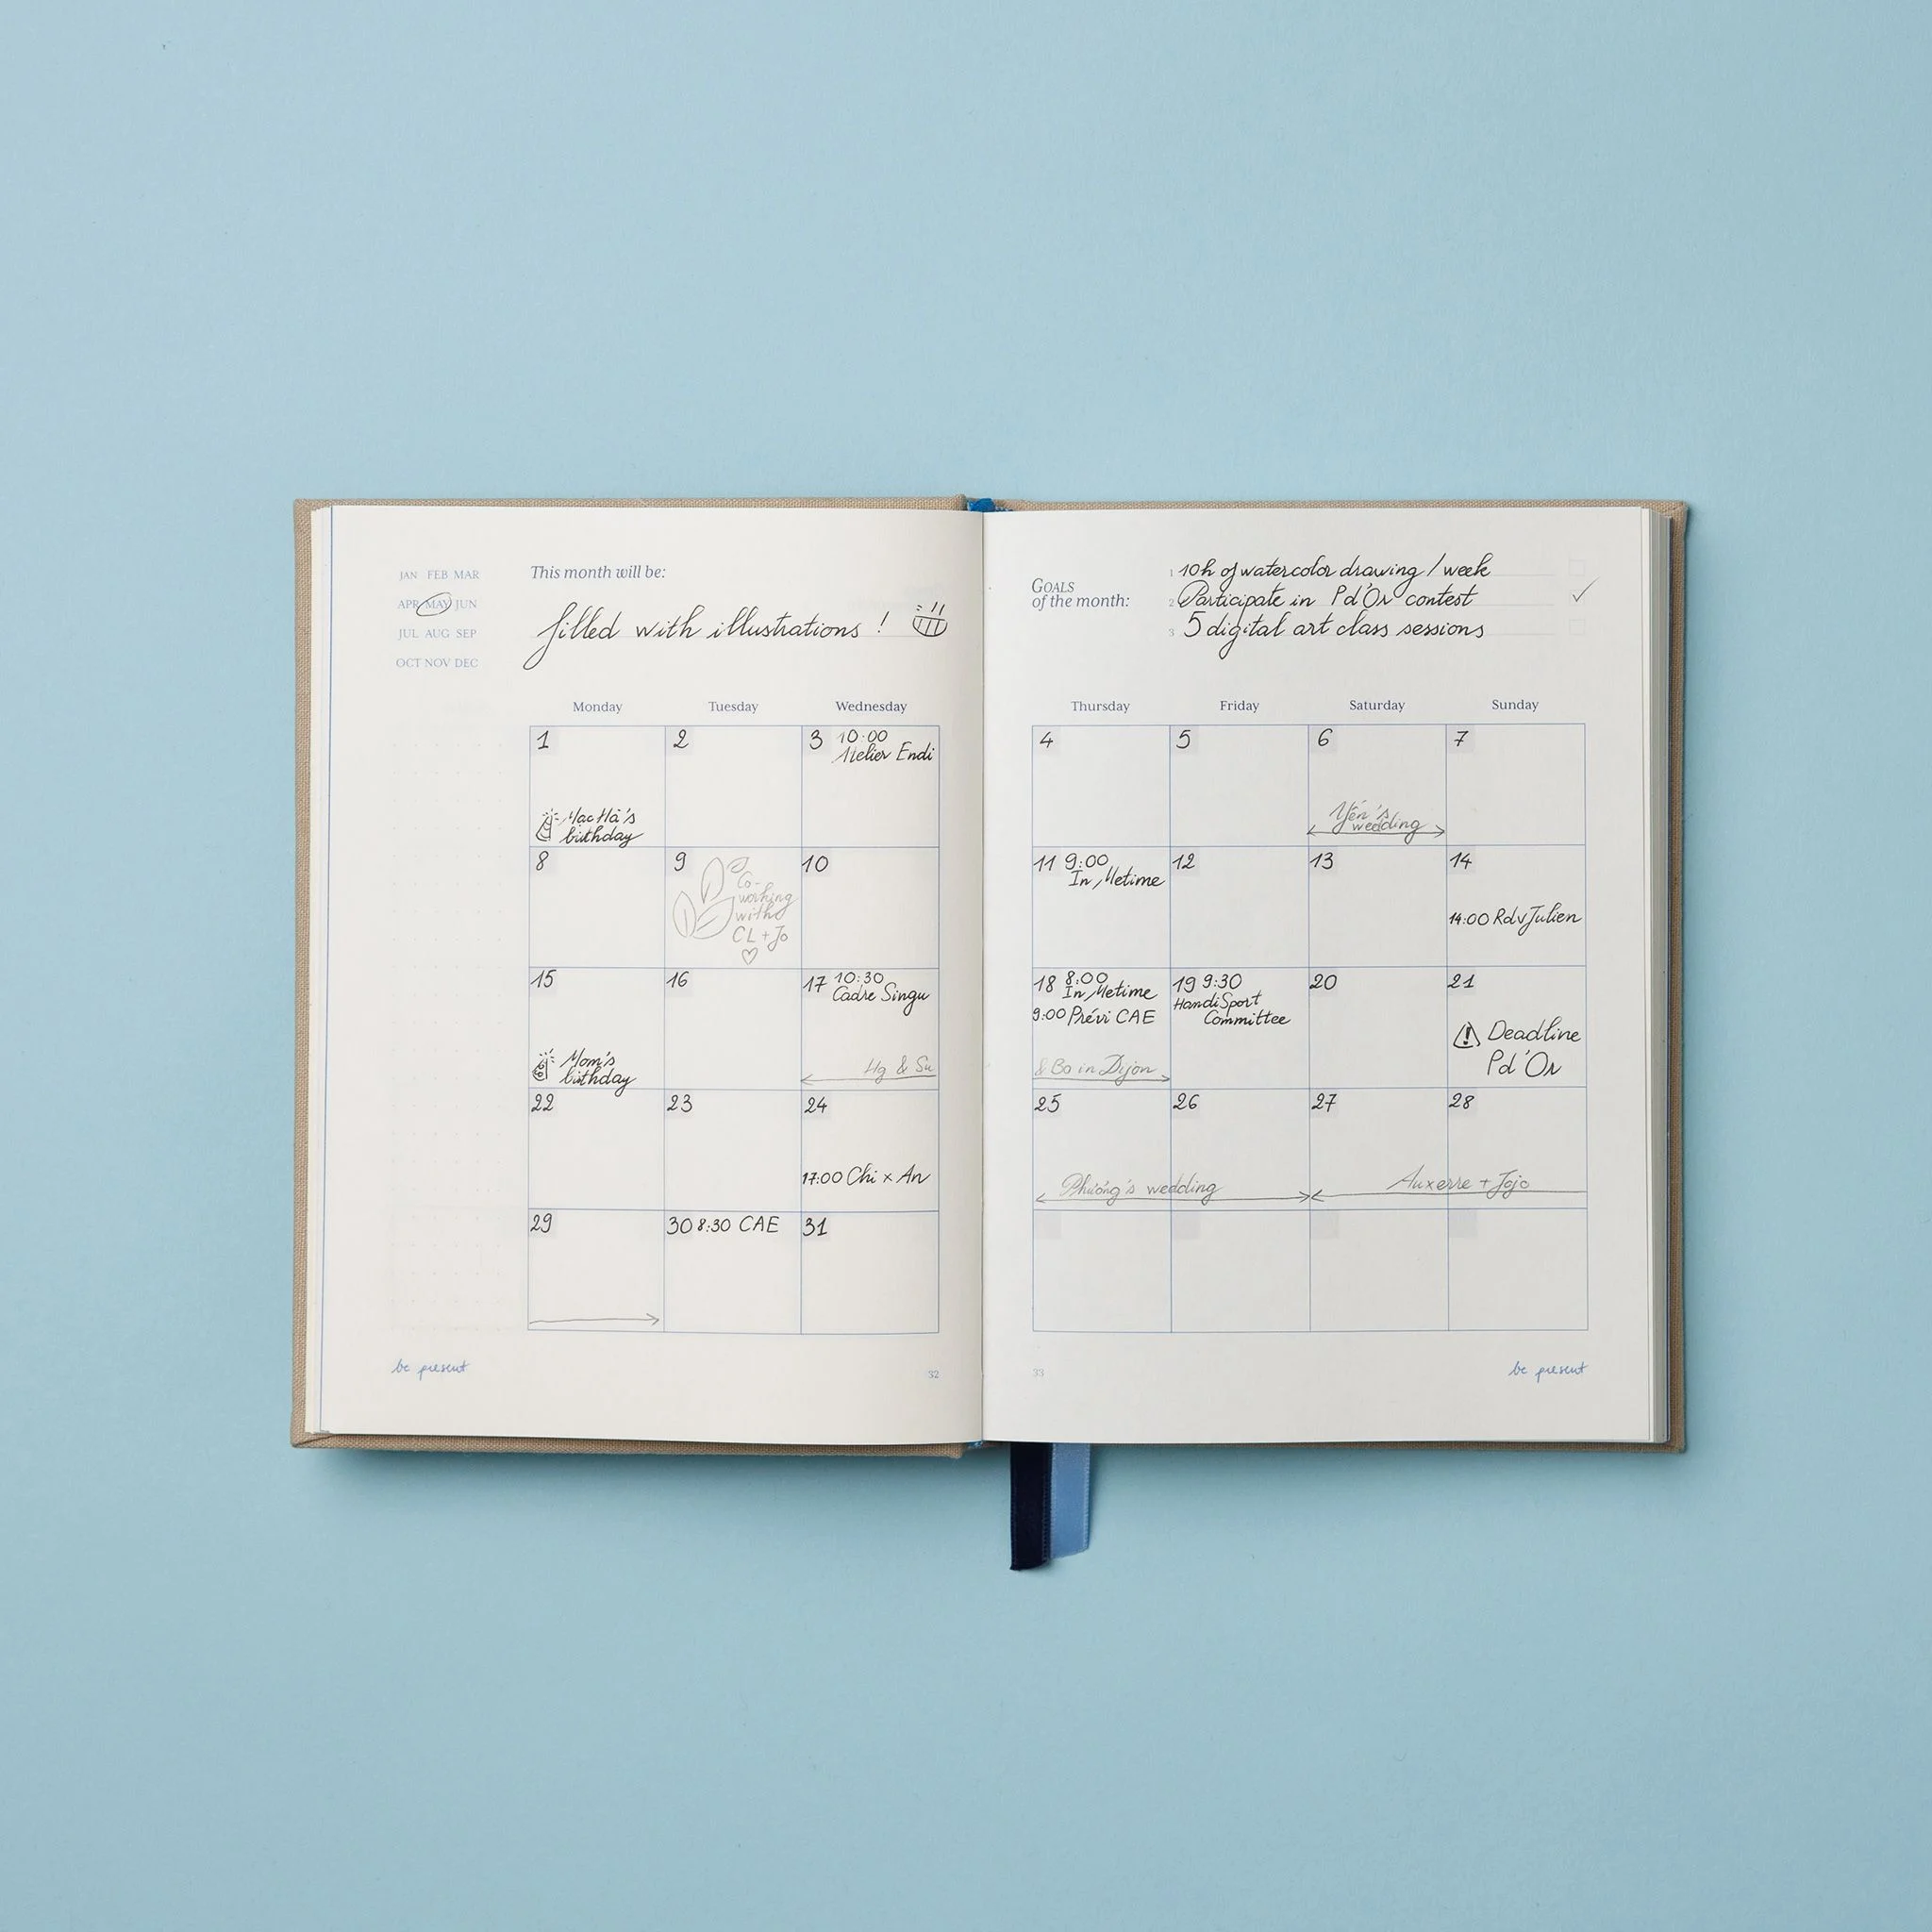 JAN FEB MAR
APR MAY JUN
JUL AUG SEP
OCT NOV DEC
This month will be:
filled with illustrations !
GOALS
of the month:
1 10h of watercolor drawing / week
2 Participate in Pd'Or contest
3 5 digital art class sessions
Monday Tuesday Wednesday Thursday Friday Saturday Sunday
1
Mac Hà's
birthday
2
3 10:00
Atelier Endi
4
5
6
Yến's
wedding
7
8
9
Co-
working
with
CL + Jo
10
11 9:00
In Metime
12
13
14
14:00 Rdv Julien
15
Mom's
birthday
16
17 10:30
Cadre Singu
Hg & Su
18 8:00
In Metime
9:00 Prévi CAE
& Bo in Dijon
19 9:30
HandiSport
Committee
20
21
Deadline
Pd'Or
22
23
24
17:00 Chi x An
25
26
Phương's wedding
27
28
Auxerre + Jojo
29
30 8:30 CAE
31
be present
32
33
be present